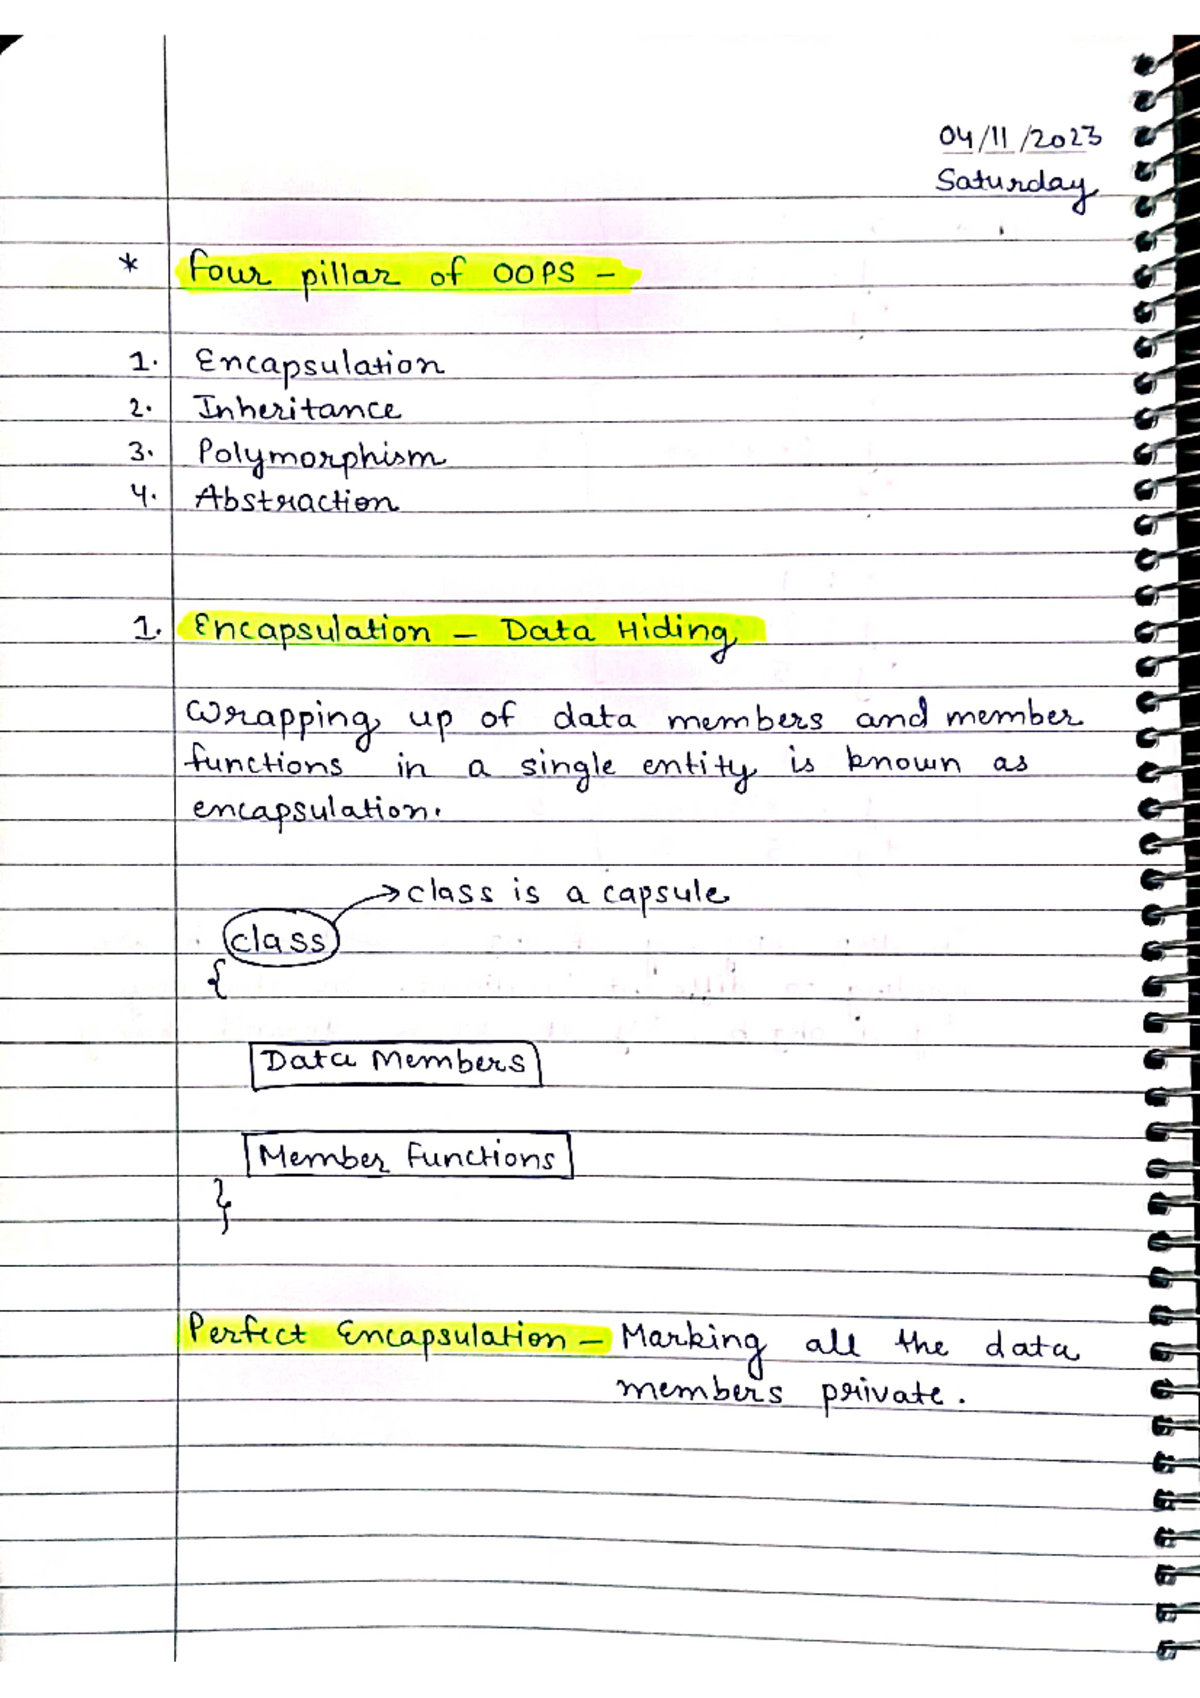 04/11/2023
Saturday
* Four pillar of OOPS -
1. Encapsulation
2. Inheritance
3. Polymorphism
4. Abstraction
1. Encapsulation - Data Hiding
Wrapping up of data members and member
functions in a single entity is known as
encapsulation.
→ class is a capsule
class
{
Data Members
Member Functions
}
Perfect Encapsulation - Marking all the data
members private.